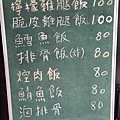 檸檬雞腿飯 100
脆皮雞腿飯 100
鱈魚飯 80
排骨飯(炸) 80
焢肉飯 80
鯖魚飯 80
滷排骨 80